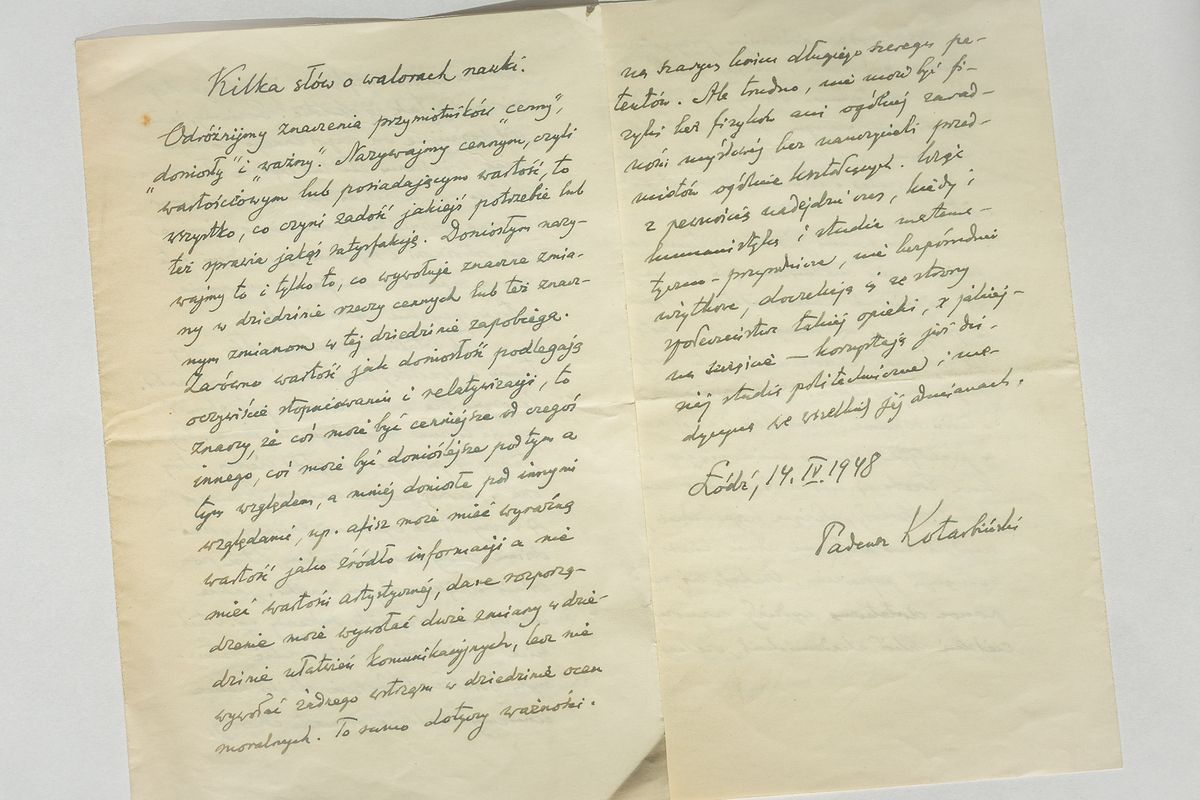 Kilka słów o walorach nauki.
Odróżnijmy znaczenia przymiotników „cenny",
„doniosły" i „ważny". Nazywajmy cennym, czyli
wartościowym lub posiadającym wartość, to
wszystko, co czyni zadość jakiejś potrzebie lub
też sprawia jakąś satysfakcję. Doniosłym nazy-
wajmy to i tylko to, co wywołuje znaczne zmia-
ny w dziedzinie rzeczy cennych lub też znacz-
nym zmianom w tej dziedzinie zapobiega.
Zarówno wartość jak doniosłość podlegają
oczywiście stopniowaniu i relatywizacji, to
znaczy, że coś może być cenniejsze od czegoś
innego, coś może być donioślejsze pod tym a
tym względem, a mniej doniosłe pod innymi
względami, np. afisz może mieć wyraźną
wartość jako źródło informacji a nie
mieć wartości artystycznej, dane rozporzą-
dzenie może wywołać duże zmiany w dzie-
dzinie ułatwień komunikacyjnych, lecz nie
wywołać żadnego wstrząsu w dziedzinie ocen
moralnych. To samo dotyczy ważności.
na szarym końcu długiego szeregu pe-
tentów. Ale trudno, nie może być fi-
zyki bez fizyków ani ogólnej zarad-
ności myślowej bez nauczycieli przed-
miotów ogólnie kształcących. Więc
z pewnością nadejdzie czas, kiedy i
humanistyka i studia matema-
tyczno-przyrodnicze, nie bezpośrednio
użytkowe, doczekają się ze strony
społeczeństwa takiej opieki, z jakiej –
na szczęście – korzystają już dzi-
siaj studia politechniczne i me-
dycyna we wszelkich jej odmianach.
Łódź, 14. IV. 1948
Tadeusz Kotarbiński